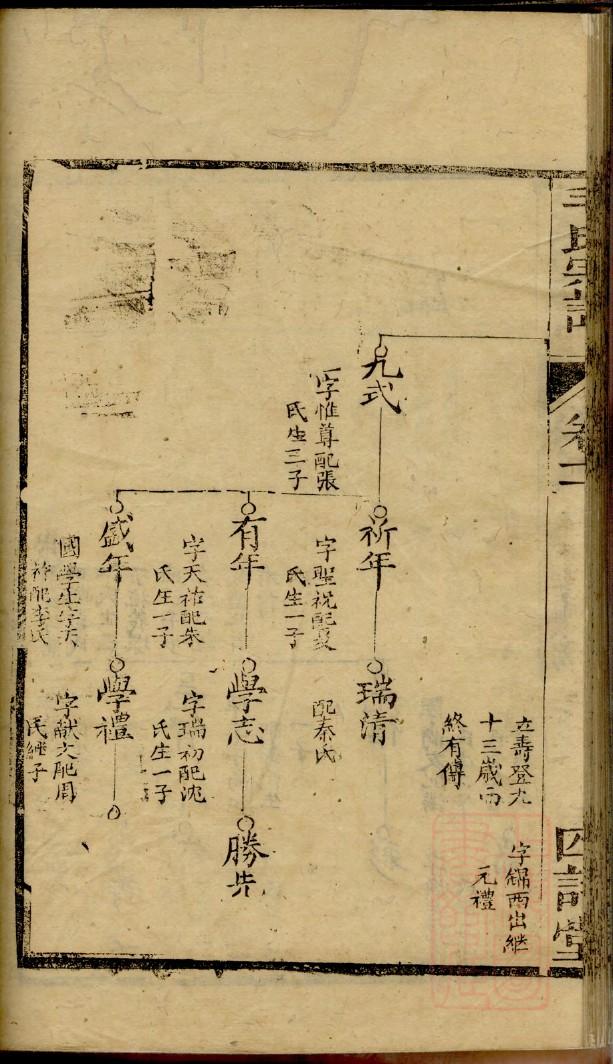 氏宗譜
卷二
四詩堂
立壽登九
十三歲而
終有傳
字錦西出繼
元禮
九式
字惟尊配張
氏生三子
祈年
字聖祝配夏
氏生一子
瑞清
配秦氏
有年
字天祐配朱
氏生一子
學志
字瑞初配沈
氏生一子
勝先
盛年
國學生字天
祚配李氏
學禮
字献文配周
氏繼子